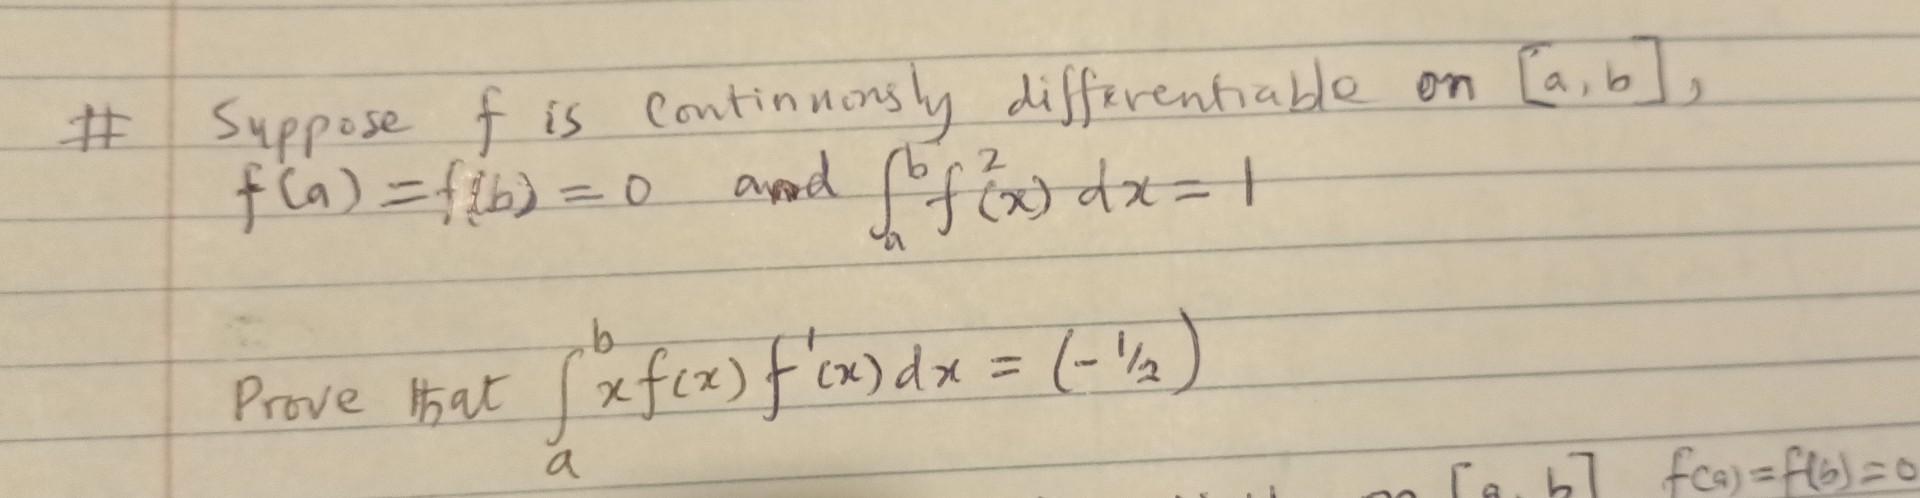 # Suppose f is Continuously differentiable on [a, b],
f(a) = f(b) = 0 and ∫_a^b f²(x) dx = 1
Prove that ∫_a^b x f(x) f'(x) dx = (-1/2)
[a, b] f(a) = f(b) = 0